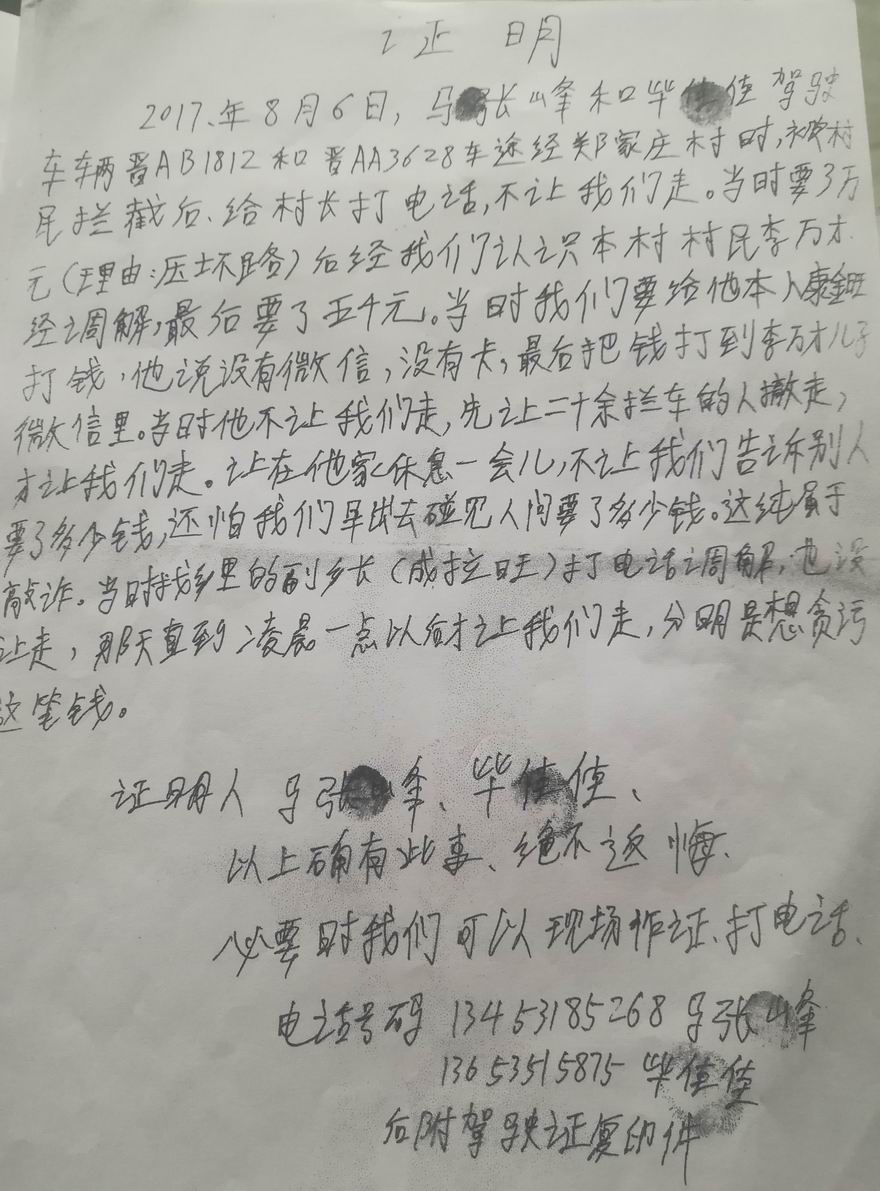 证明
2017.年8月6日，马张峰和毕佳佳驾驶
车辆晋AB1812和晋AA3628车途经郑家庄村时，被村
民拦截后、给村长打电话，不让我们走。当时要了万
元（理由：压坏路）后经我们认识本村村民李万才
经调解，最后要了五千元。当时我们要给他本人康金旺
打钱，他说没有微信，没有卡，最后把钱打到李万才儿子
微信里。当时他不让我们走，先让二十余拦车的人撤走，
才让我们走。让在他家休息一会儿，不让我们告诉别人
要了多少钱，还怕我们早出去碰见人问要了多少钱。这纯属于
敲诈。当时找乡里的副乡长（成拉旺）打电话调解，也没
让走，那天直到凌晨一点以后才让我们走，分明是想贪污
这笔钱。
证明人 马张峰、毕佳佳、
以上确有此事、绝不返悔、
必要时我们可以现场作证、打电话、
电话号码 13453185268 马张峰
13653515875 毕佳佳
后附驾驶证复印件